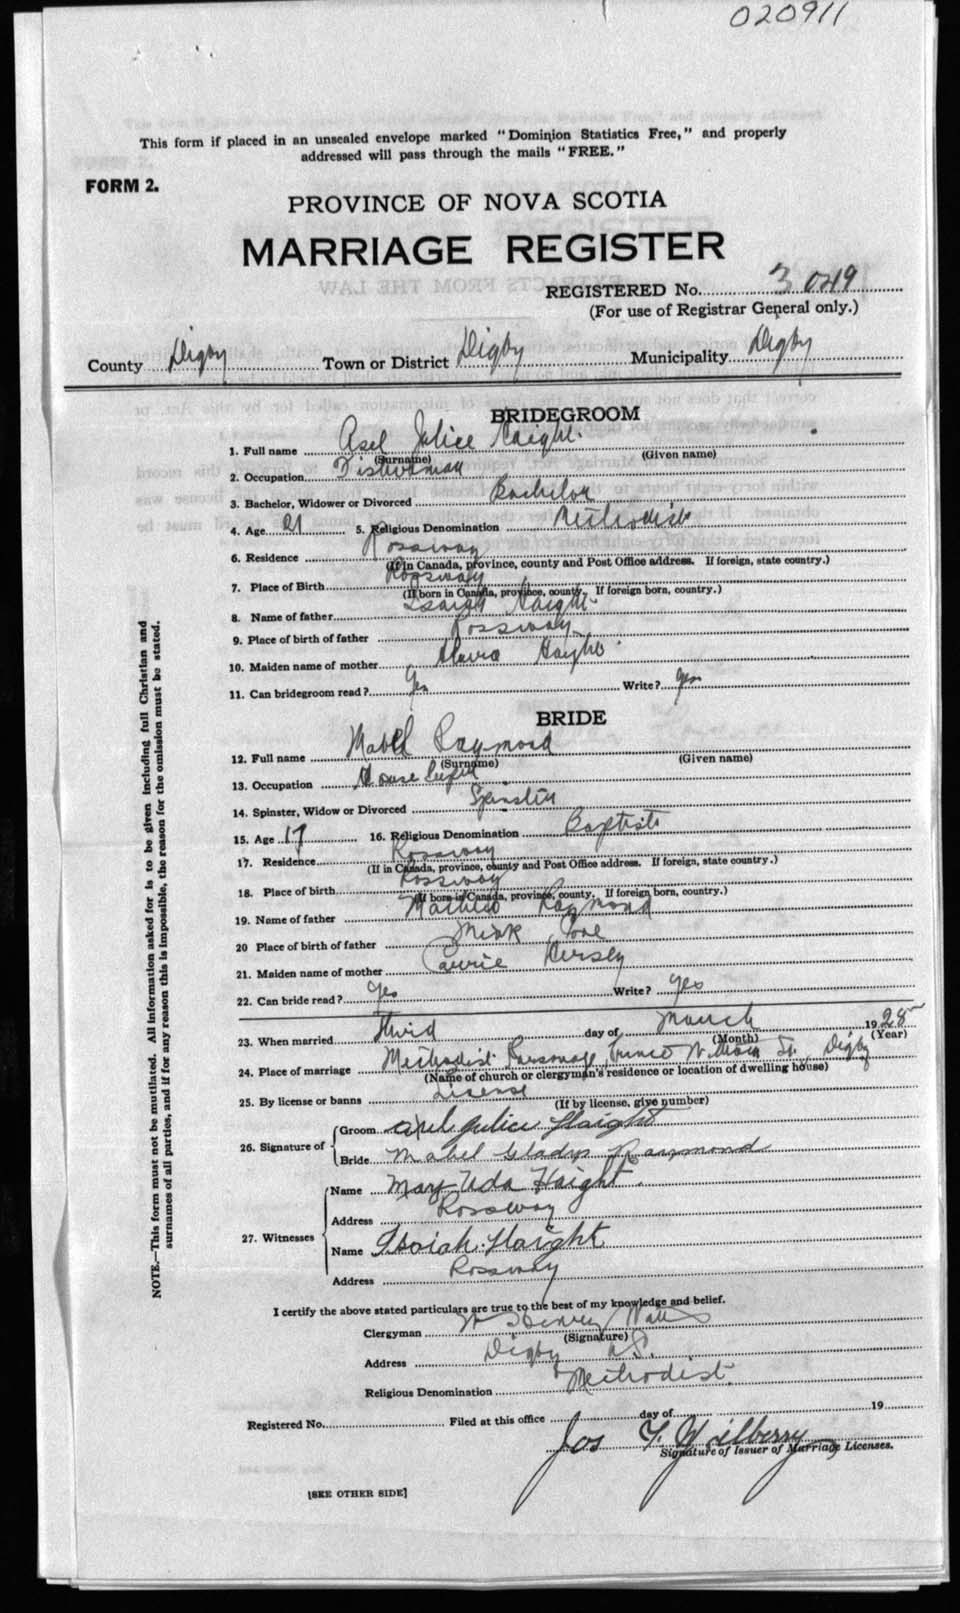 020911
This form if placed in an unsealed envelope marked "Dominion Statistics Free," and properly
addressed will pass through the mails "FREE."
FORM 2.
PROVINCE OF NOVA SCOTIA
MARRIAGE REGISTER
REGISTERED No. 3049
(For use of Registrar General only.)
County Digby Town or District Digby Municipality Digby
BRIDEGROOM
1. Full name Axel Julice Haight
(Surname) (Given name)
2. Occupation Fisherman
3. Bachelor, Widower or Divorced Bachelor
4. Age 21 5. Religious Denomination Methodist
6. Residence Rossway
(If in Canada, province, county and Post Office address. If foreign, state country.)
7. Place of Birth Rossway
(If born in Canada, province, county. If foreign born, country.)
8. Name of father Isaiah Haight
9. Place of birth of father Rossway
10. Maiden name of mother Haight
11. Can bridegroom read? Yes Write? Yes
BRIDE
12. Full name Mabel Raymond
(Surname) (Given name)
13. Occupation House keeper
14. Spinster, Widow or Divorced Spinster
15. Age 17 16. Religious Denomination Baptist
17. Residence Rossway
(If in Canada, province, county and Post Office address. If foreign, state country.)
18. Place of birth Rossway
(If born in Canada, province, county. If foreign born, country.)
19. Name of father Raymond
20 Place of birth of father Mink Cove
21. Maiden name of mother Carrie Hersey
22. Can bride read? Yes Write? Yes
23. When married Third day of March 1925
(Month) (Year)
24. Place of marriage Methodist Parsonage, Prince William St., Digby
(Name of church or clergyman's residence or location of dwelling house)
25. By license or banns License
(If by license, give number)
26. Signature of Groom Axel Julice Haight
Bride Mabel Gladys Raymond
27. Witnesses Name Mary Uda Haight
Address Rossway
Name Isaiah Haight
Address Rossway
I certify the above stated particulars are true to the best of my knowledge and belief.
Clergyman W Henry Watts
(Signature)
Address Digby N.S.
Religious Denomination Methodist
Registered No. Filed at this office day of 19
Jos F. Wilberry
Signature of Issuer of Marriage Licenses.
[SEE OTHER SIDE]
NOTE.—This form must not be mutilated. All information asked for is to be given including full Christian and
surnames of all parties, and if for any reason this is impossible, the reason for the omission must be stated.